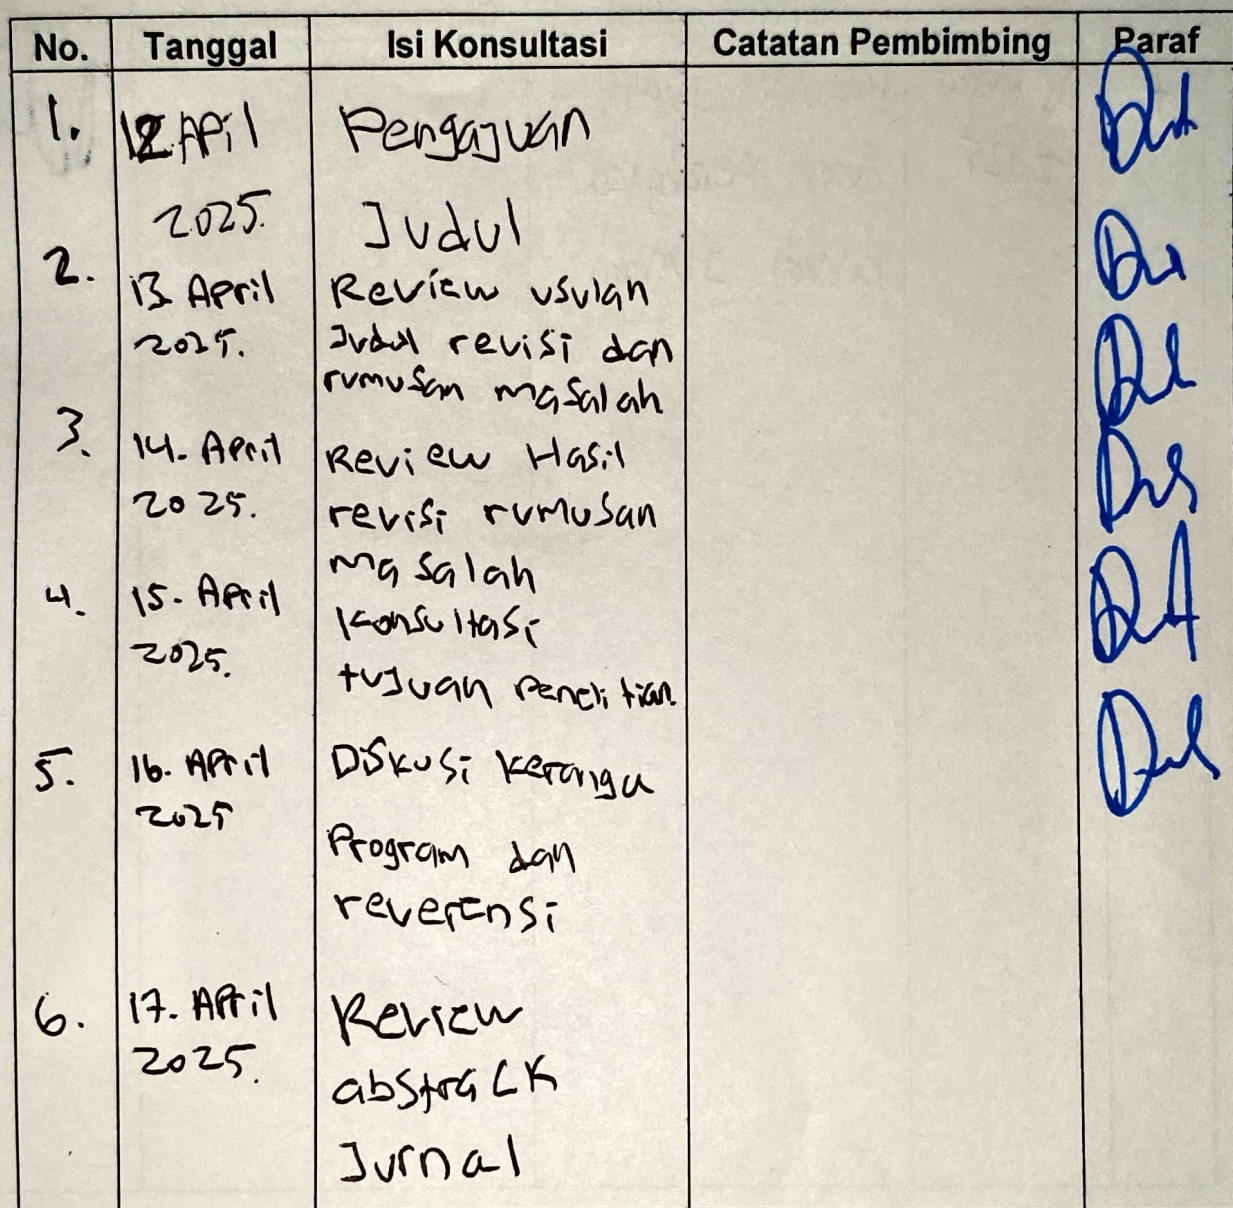 No. Tanggal Isi Konsultasi Catatan Pembimbing Paraf
1. 12 April Pengajuan
2025. Judul
2. 13 April Review usulan
2025. Judul revisi dan
rumusan masalah
3. 14. April Review Hasil
2025. revisi rumusan
masalah
4. 15. April Konsultasi
2025. tujuan Penelitian.
5. 16. April Diskusi kerangu
2025 Program dan
reverensi
6. 17. April Review
2025. abstrack
Jurnal